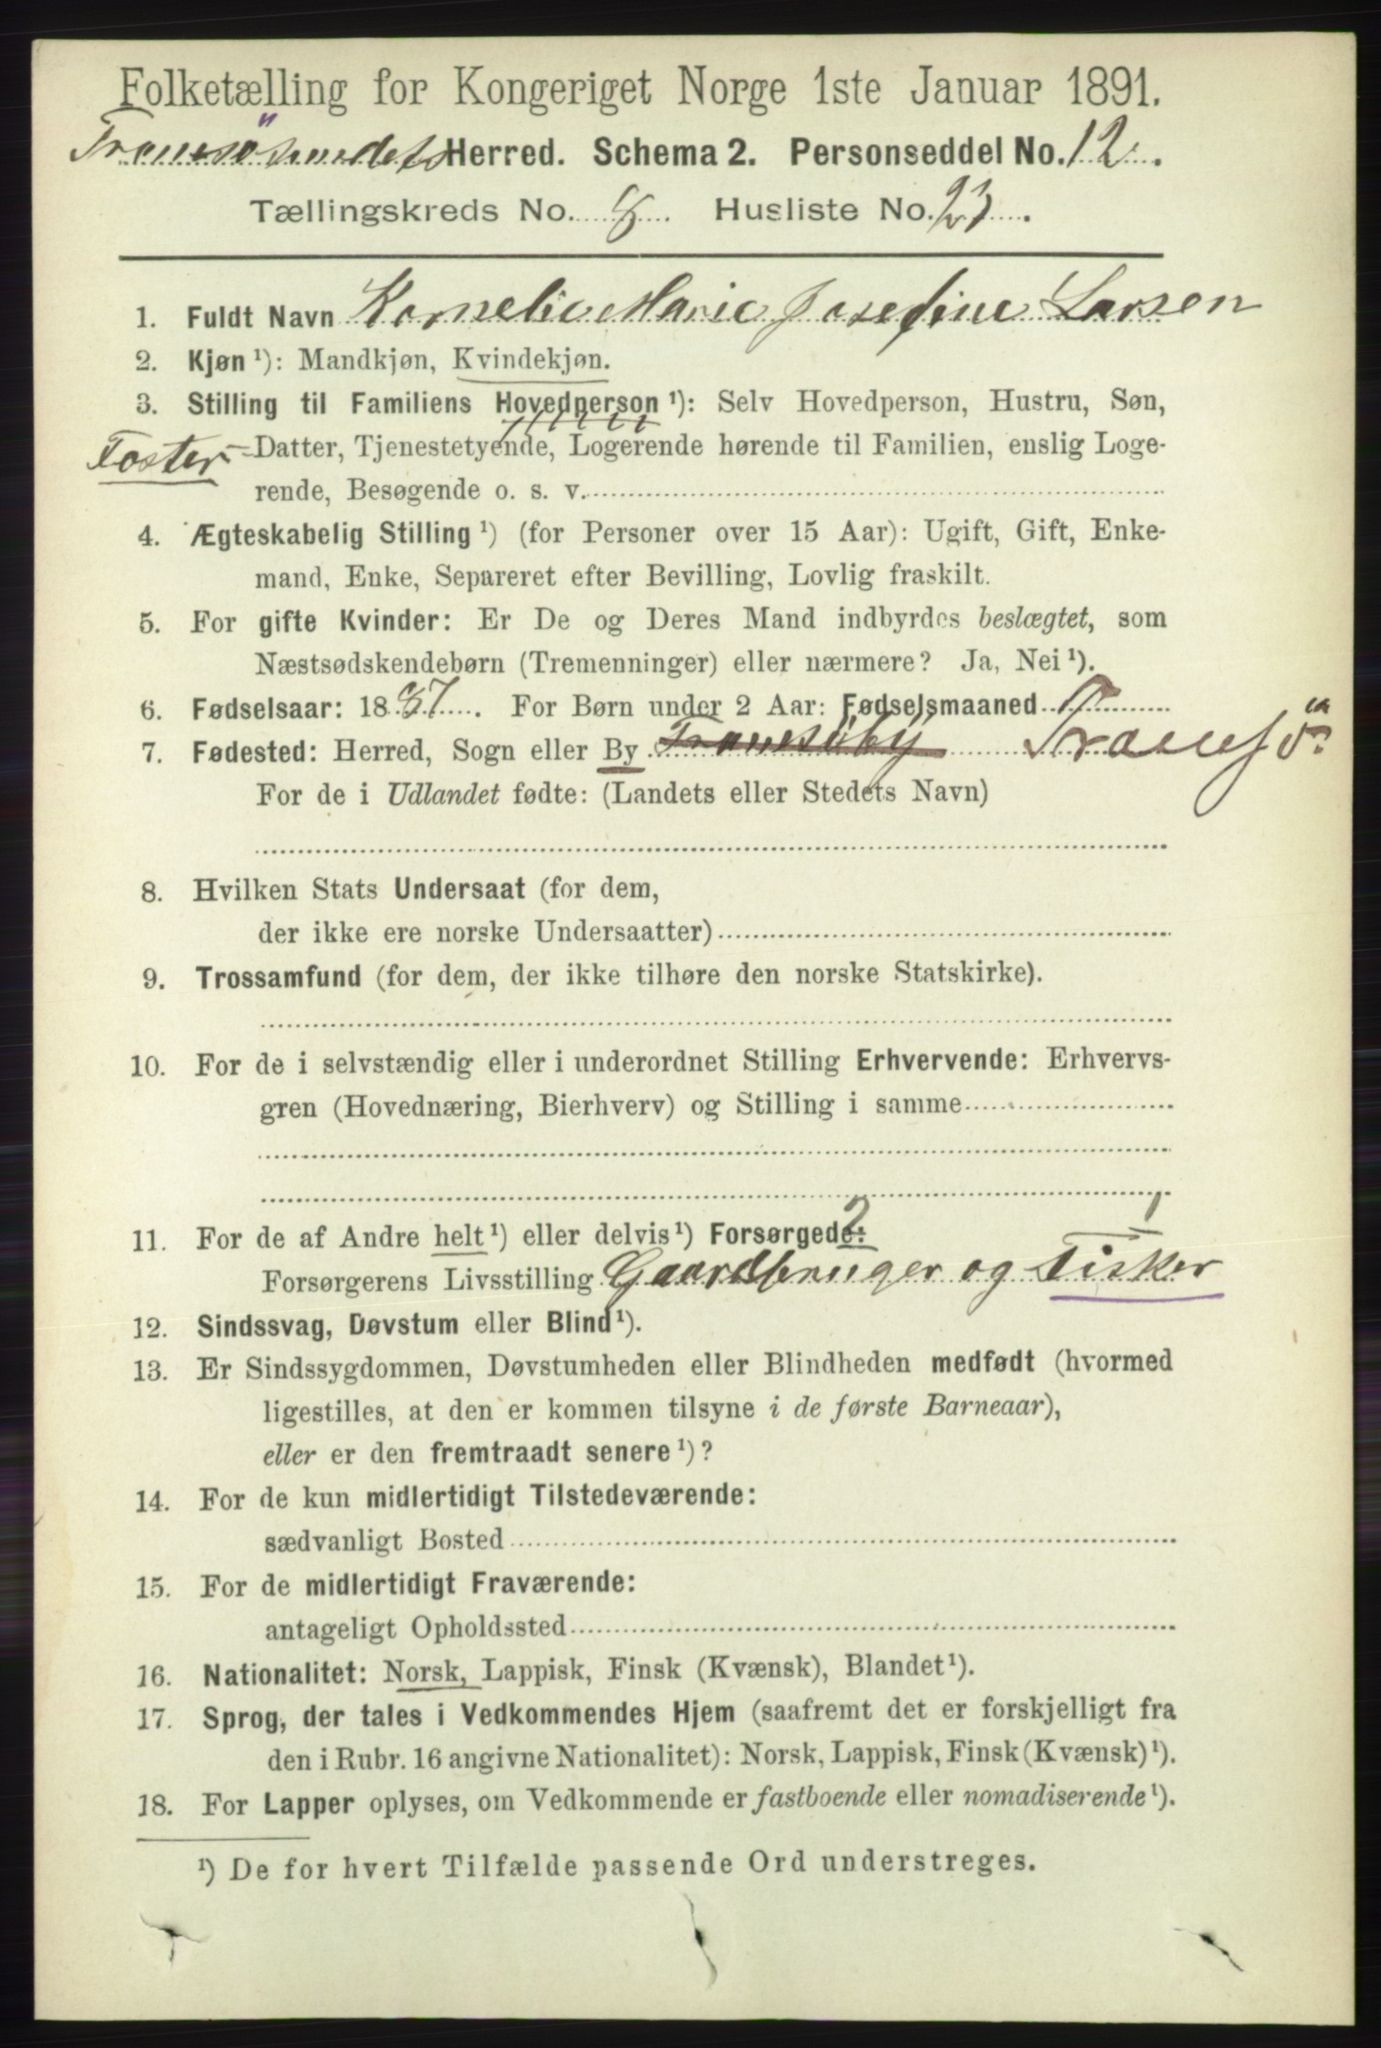 Folketælling for Kongeriget Norge 1ste Januar 1891.
Tromsøsundets Herred. Schema 2. Personseddel No. 12.
Tællingskreds No. 8. Husliste No. 23.
1. Fuldt Navn Kornelie Marie Josefine Larsen
2. Kjøn ¹): Mandkjøn, Kvindekjøn.
3. Stilling til Familiens Hovedperson ¹): Selv Hovedperson, Hustru, Søn,
Foster- Datter, Tjenestetyende, Logerende hørende til Familien, enslig Loge-
rende, Besøgende o. s. v.
4. Ægteskabelig Stilling ¹) (for Personer over 15 Aar): Ugift, Gift, Enke-
mand, Enke, Separeret efter Bevilling, Lovlig fraskilt.
5. For gifte Kvinder: Er De og Deres Mand indbyrdes beslægtet, som
Næstsødskendebørn (Tremenninger) eller nærmere? Ja, Nei ¹).
6. Fødselsaar: 1887. For Børn under 2 Aar: Fødselsmaaned
7. Fødested: Herred, Sogn eller By Tromsöby Tromsö
For de i Udlandet fødte: (Landets eller Stedets Navn)
8. Hvilken Stats Undersaat (for dem,
der ikke ere norske Undersaatter)
9. Trossamfund (for dem, der ikke tilhøre den norske Statskirke).
10. For de i selvstændig eller i underordnet Stilling Erhvervende: Erhvervs-
gren (Hovednæring, Bierhverv) og Stilling i samme
11. For de af Andre helt ¹) eller delvis ¹) Forsørgede: 2 1
Forsørgerens Livsstilling Gaardbruger og Fisker
12. Sindssvag, Døvstum eller Blind ¹).
13. Er Sindssygdommen, Døvstumheden eller Blindheden medfødt (hvormed
ligestilles, at den er kommen tilsyne i de første Barneaar),
eller er den fremtraadt senere ¹)?
14. For de kun midlertidigt Tilstedeværende:
sædvanligt Bosted
15. For de midlertidigt Fraværende:
antageligt Opholdssted
16. Nationalitet: Norsk, Lappisk, Finsk (Kvænsk), Blandet ¹).
17. Sprog, der tales i Vedkommendes Hjem (saafremt det er forskjelligt fra
den i Rubr. 16 angivne Nationalitet): Norsk, Lappisk, Finsk (Kvænsk) ¹).
18. For Lapper oplyses, om Vedkommende er fastboende eller nomadiserende ¹).
¹) De for hvert Tilfælde passende Ord understreges.